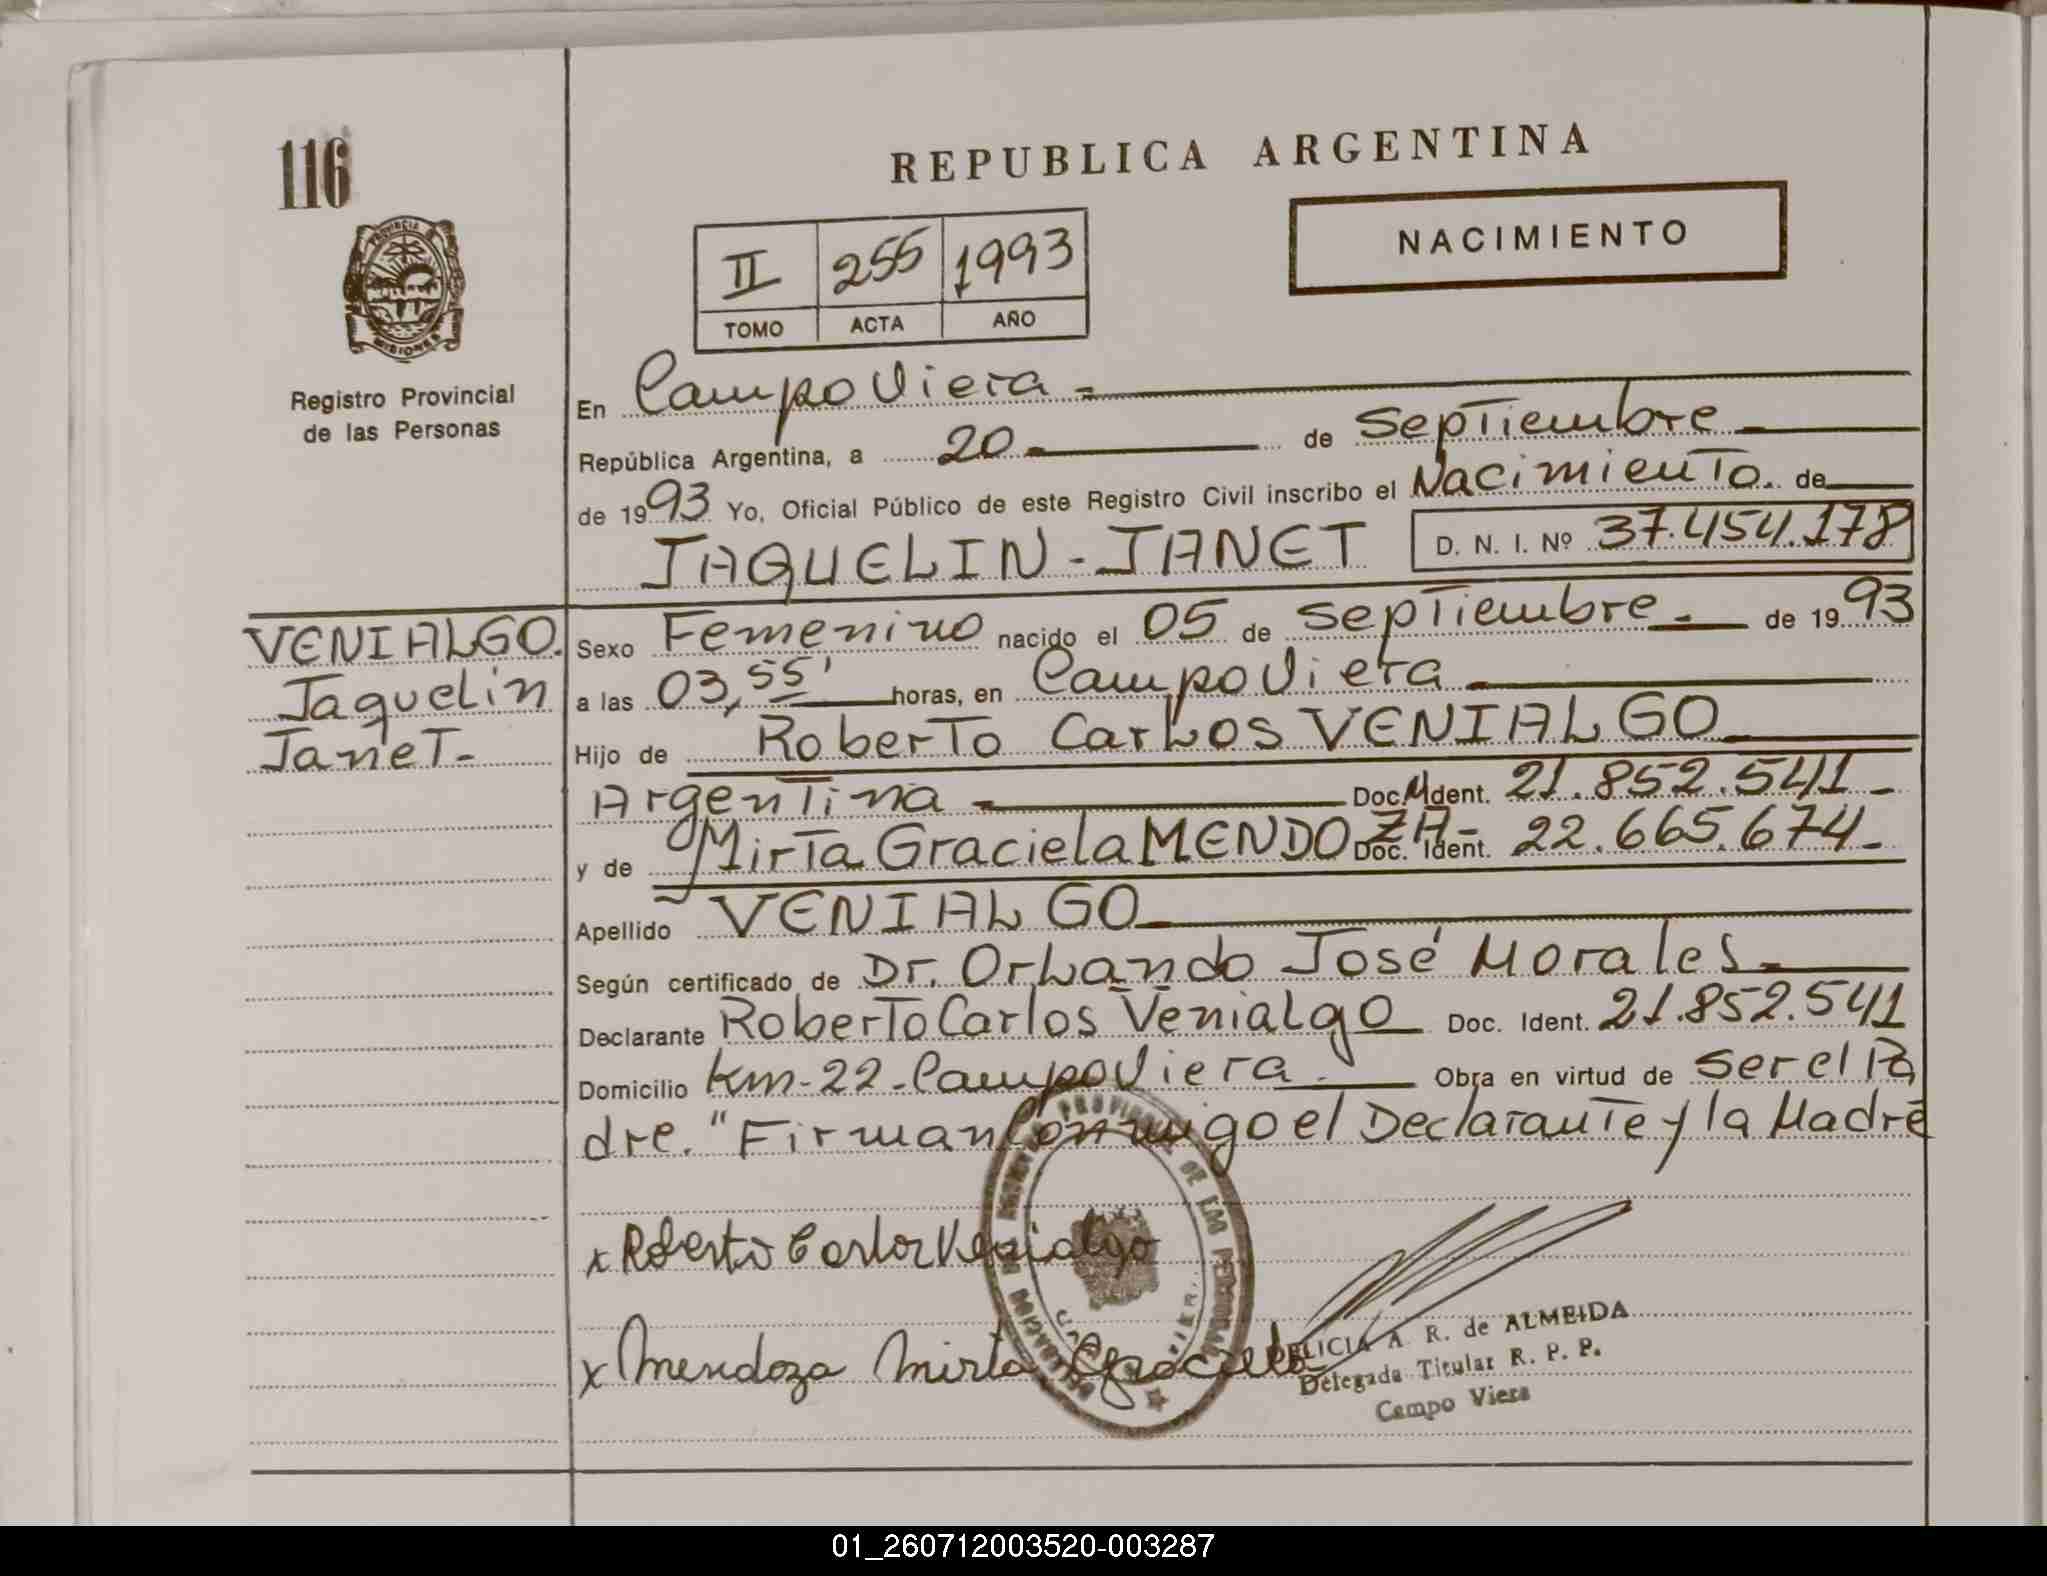 116
REPUBLICA ARGENTINA
NACIMIENTO
II 255 1993
TOMO ACTA AÑO
PROVINCIA D
MISIONES
Registro Provincial
de las Personas
En Campo Viera -
República Argentina, a 20 - de Septiembre -
de 1993 Yo, Oficial Público de este Registro Civil inscribo el Nacimiento. de
JAQUELIN - JANET D. N. I. Nº 37.454.178
VENIALGO.
Jaquelin
Janet-
Sexo Femenino nacido el 05 de septiembre - de 1993
a las 03,55' horas, en Campo Viera -
Hijo de Roberto Carlos VENIALGO
Argentina - Doc. M Ident. 21.852.541-
y de Mirta Graciela MENDOZA- Doc. Ident. 22.665.674-
Apellido VENIALGO
Según certificado de Dr. Orlando José Morales -
Declarante Roberto Carlos Venialgo Doc. Ident. 21.852.541
Domicilio km-22-Campo Viera. Obra en virtud de ser el Pa
dre. "Firman Conmigo el Declarante y la Madre
x Roberto Carlos Venialgo
x Mendoza Mirta Graciela
A. R. de ALMEIDA
Delegada Titular R. P. P.
Campo Viera
01_260712003520-003287